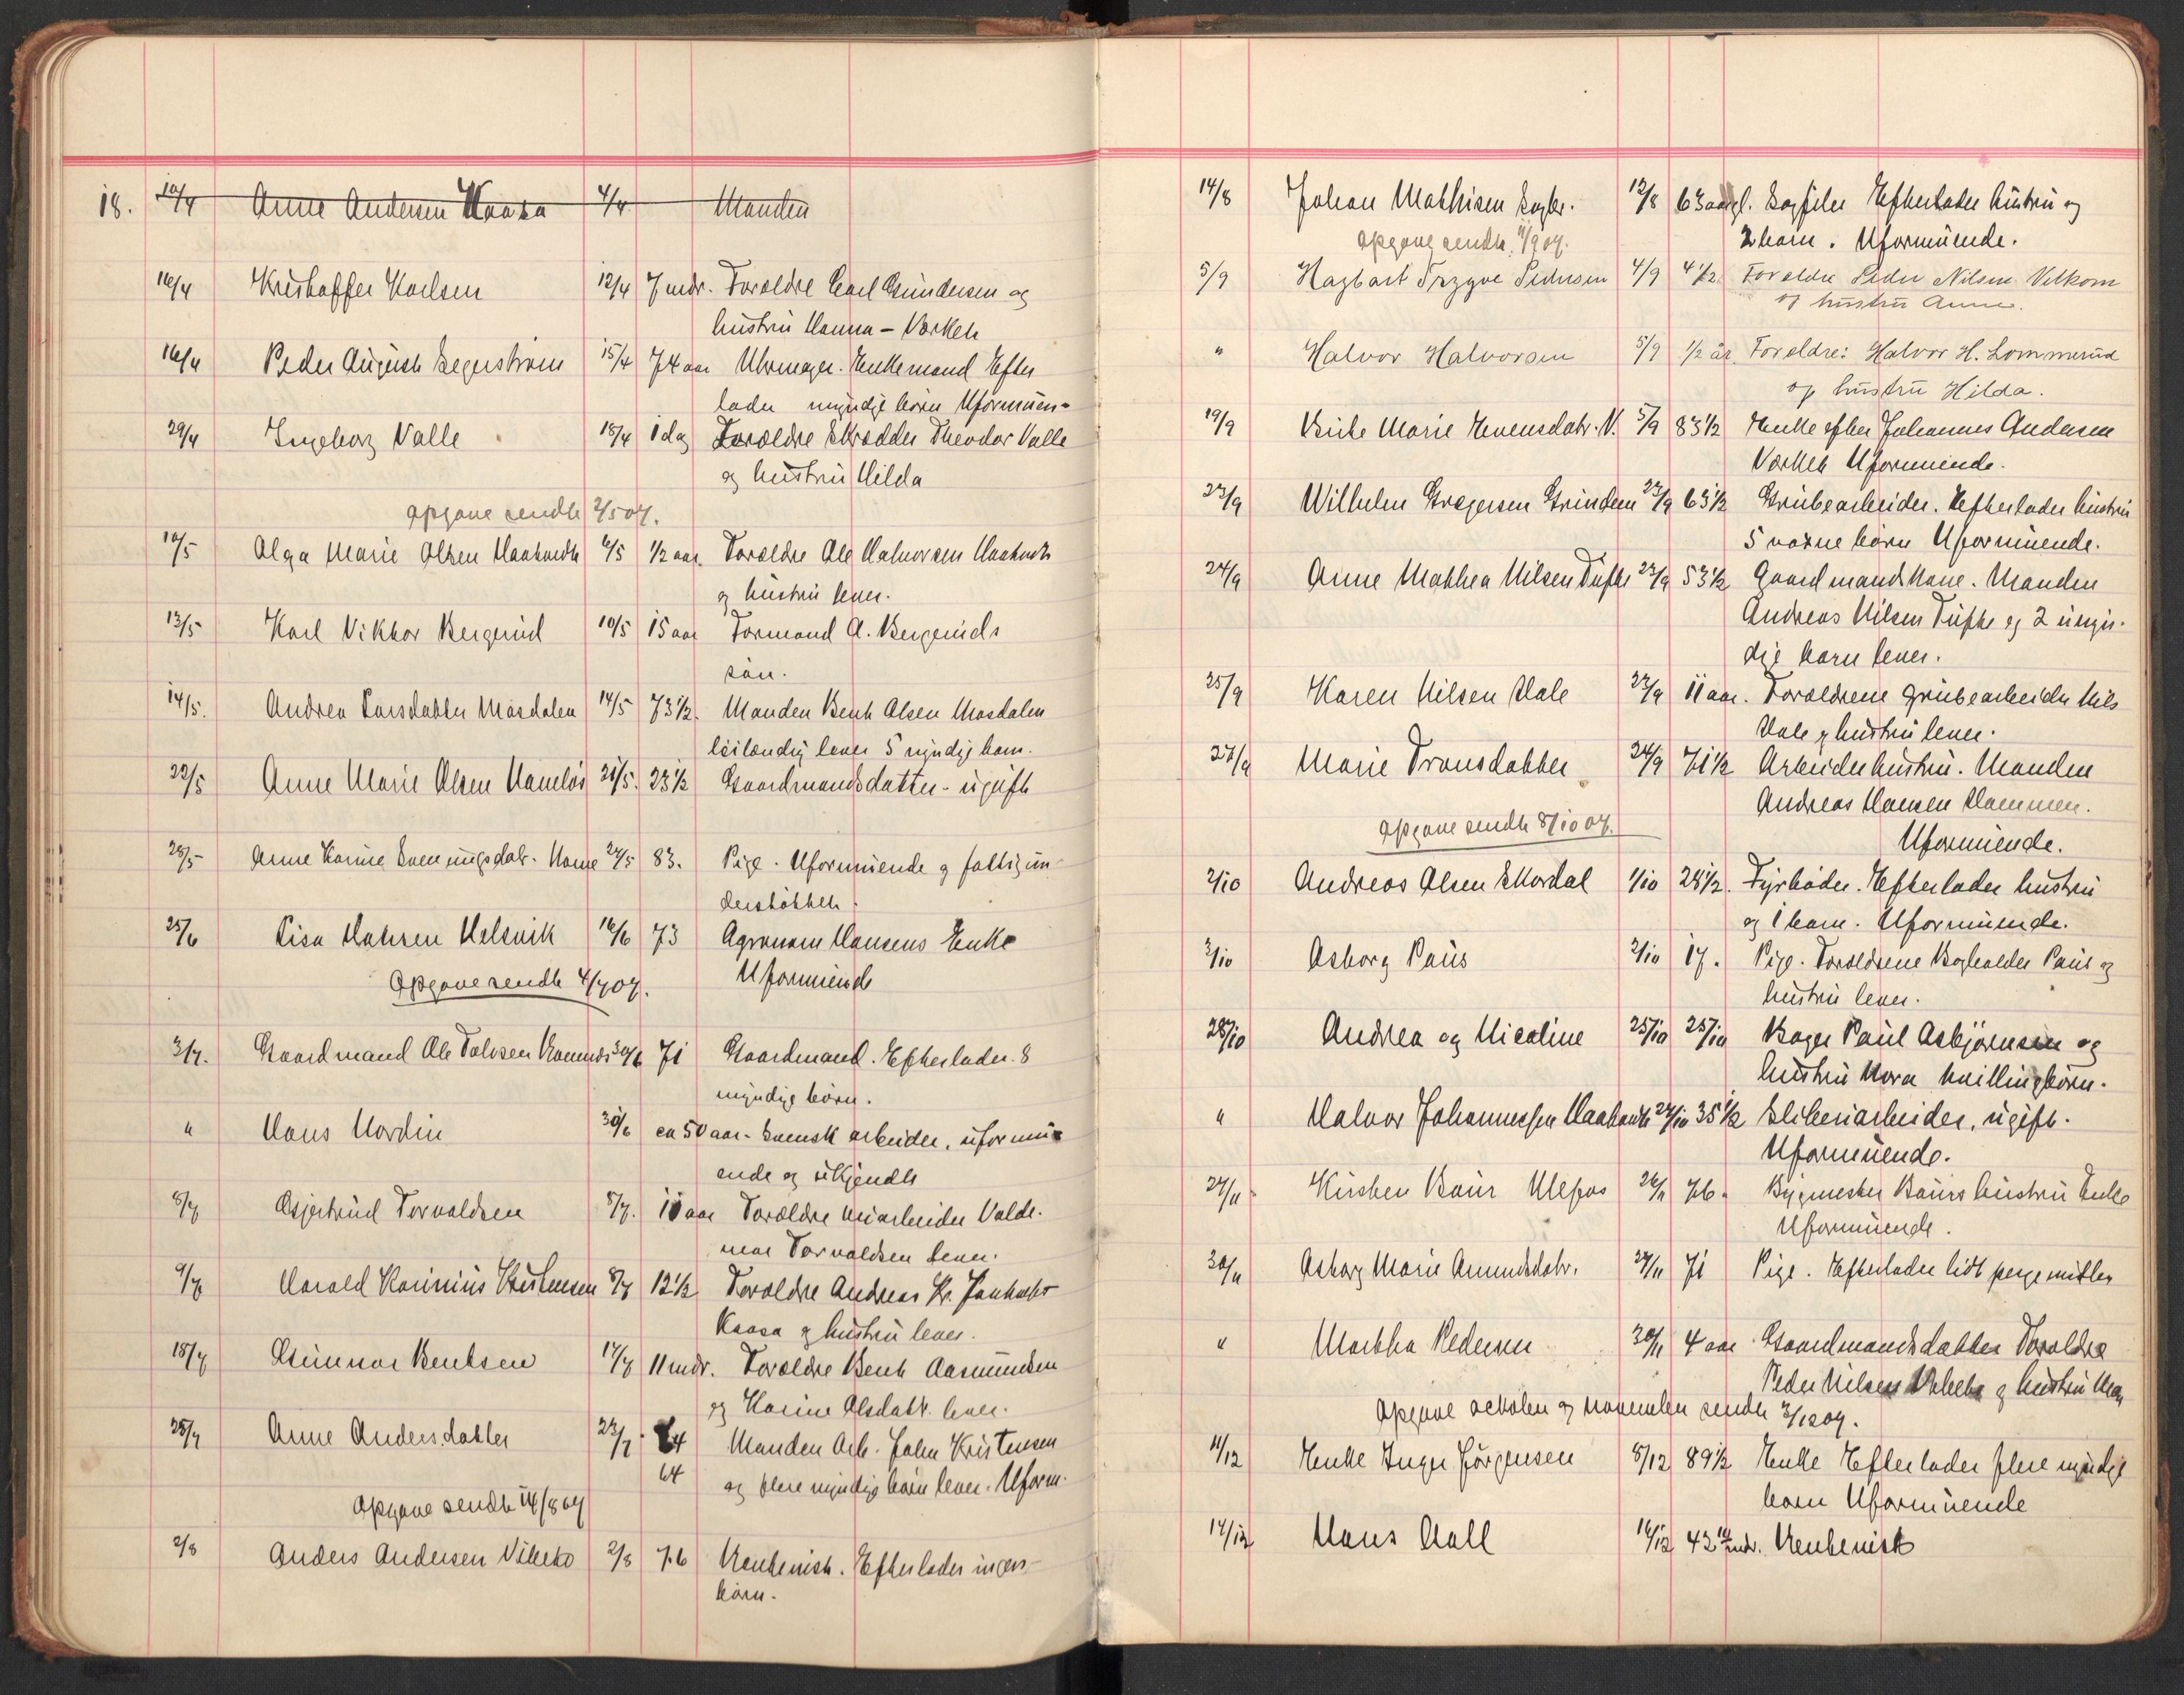 18. 10/4 Anne Andersen Kaasa 4/4 Manden
16/4 Kristoffer Karlsen 12/4 7 mdr. Forældre Carl Gundersen og
hustru Hanna - Værket
16/4 Peder August Segerström 15/4 74 aar Uhrmager. Enkemand Efter
lader myndige börn Uformuen-
29/4 Ingeborg Valle 18/4 1 dag Forældre Skrædder Theodor Valle
og hustru Hilda
opgave sendt 2/5 07.
10/5 Olga Marie Olsen Haatvedt 6/5 1/2 aar. Forældre Ole Halvorsen Haatvedt
og hustru lever.
13/5 Karl Viktor Bergerud 10/5 15 aar Formand A. Bergeruds
sön.
14/5. Andrea Larsdatter Mosdalen 14/5 73 1/2. Manden Bent Olsen Mosdalen
leilending lever 5 myndige barn.
22/5 Anne Marie Olsen Namlös 21/5. 23 1/2 Gaardmandsdatter - ugift
28/5 Anne Karine Sveningsdatr. Nome 24/5 83. Pige. Uformuende og fattigun-
derstöttet.
25/6 Lisa Hansen Helsvik 16/6 73 Agronom Hansens Enke
Uformuende
Opgave sendt 4/7 07.
3/7. Gaardmand Ole 30/6 71 Gaardmand. Efterlader 8
myndige börn.
" Hans Nordin 30/6 ca 50 aar. Svensk arbeider, uformu-
ende og ukjendt
8/7 Asjertrud Torvaldsen 5/7. 10 aar Forældre Valde-
mar Torvaldsen lever.
9/7 Harald Karinius Kristensen 8/7 12 1/2 Forældre Andreas Kr.
Kaasa og hustru lever.
18/7 Gunnar Bentsen 17/7 11 mdr. Forældre Bent Aasmundsen
og Karine Olsdatt. lever.
25/7 Anne Andersdatter 23/7. 64 Manden Arb. John Kristensen
64 og flere myndige börn lever. Uform.
Opgave sendt 14/8 07
2/8 Anders Andersen Vibeto 2/8 76 Rentenist. Efterlader ingen
börn.
14/8 Johan Mathisen 12/8 63 aar gl. Sagfiler Efterlader hustru og
opgave sendt 11/9 07. 2 barn. Uformuende.
5/9 Hagbart Trygve Pedersen 4/9 4 1/2. Forældre Peder Nilsen Vetkom
og hustru Anne.
" Halvor Halvorsen 5/9 1/2 år Forældre: Halvor H. Lommerud
og hustru Hilda.
19/9 Marie Evensdatr. V. 5/9 83 1/2 Enke efter Johannes Andersen
Værket Uformuende.
23/9 Wilhelm Gregersen Grinden 23/9 63 1/2 Grubearbeider. Efterlader hustru
5 voxne börn Uformuende.
24/9 Anne Mathea Nilsen Tufte 23/9 53 1/2 Gaardmandskone. Manden
Andreas Nilsen Tufte og 2 umyn-
dige barn lever.
25/9 Karen Nilsen Dale 22/9 11 aar. Forældrene grubearbeider Nils
Dale og hustru lever.
27/9 Marie Tronsdatter 24/9 71 1/2 Arbeiderhustru. Manden
Andreas Hansen Hammen.
opgave sendt 8/10 07. Uformuende.
2/10 Andreas Olsen Skordal 1/10 28 1/2. Fyrböder. Efterlader hustru
og 1 barn. Uformuende.
3/10 Asborg Paus 2/10 17. Pige. Forældrene Bogholder Paus og
hustru lever.
28/10 Andrea og Nicoline 25/10 25/10 Bager Paul Asbjörnsen og
hustru Nora tvillingbörn.
" Halvor Johannessen Haatvedt 27/10 35 1/2 Sliberiarbeider, ugift.
Uformuende.
27/11 Kirsten Baur Ulefos 26/11 76. Bygmester Baurs hustru Enke
Uformuende.
30/11 Asborg Marie Amundsdatr. 27/11 71 Pige. Efterlader lidt pengemidler
" Martha Pedersen 30/11 4 aar. Gaardmandsdatter Forældre
Peder Nilsen og hustru
Opgave oktober og november sendt 3/12 07.
11/12 Enke Inger Jörgensen 8/12 89 1/2 Enke Efterlader flere myndige
börn Uformuende
17/12 Hans Aall 14/12 43 mdr. Rentenist